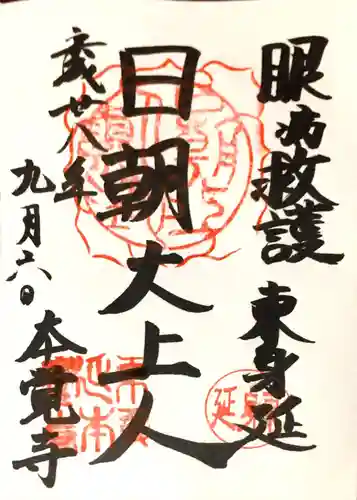 眼病救護 東身延
日朝大上人
廿八年
九月六日 本覚寺